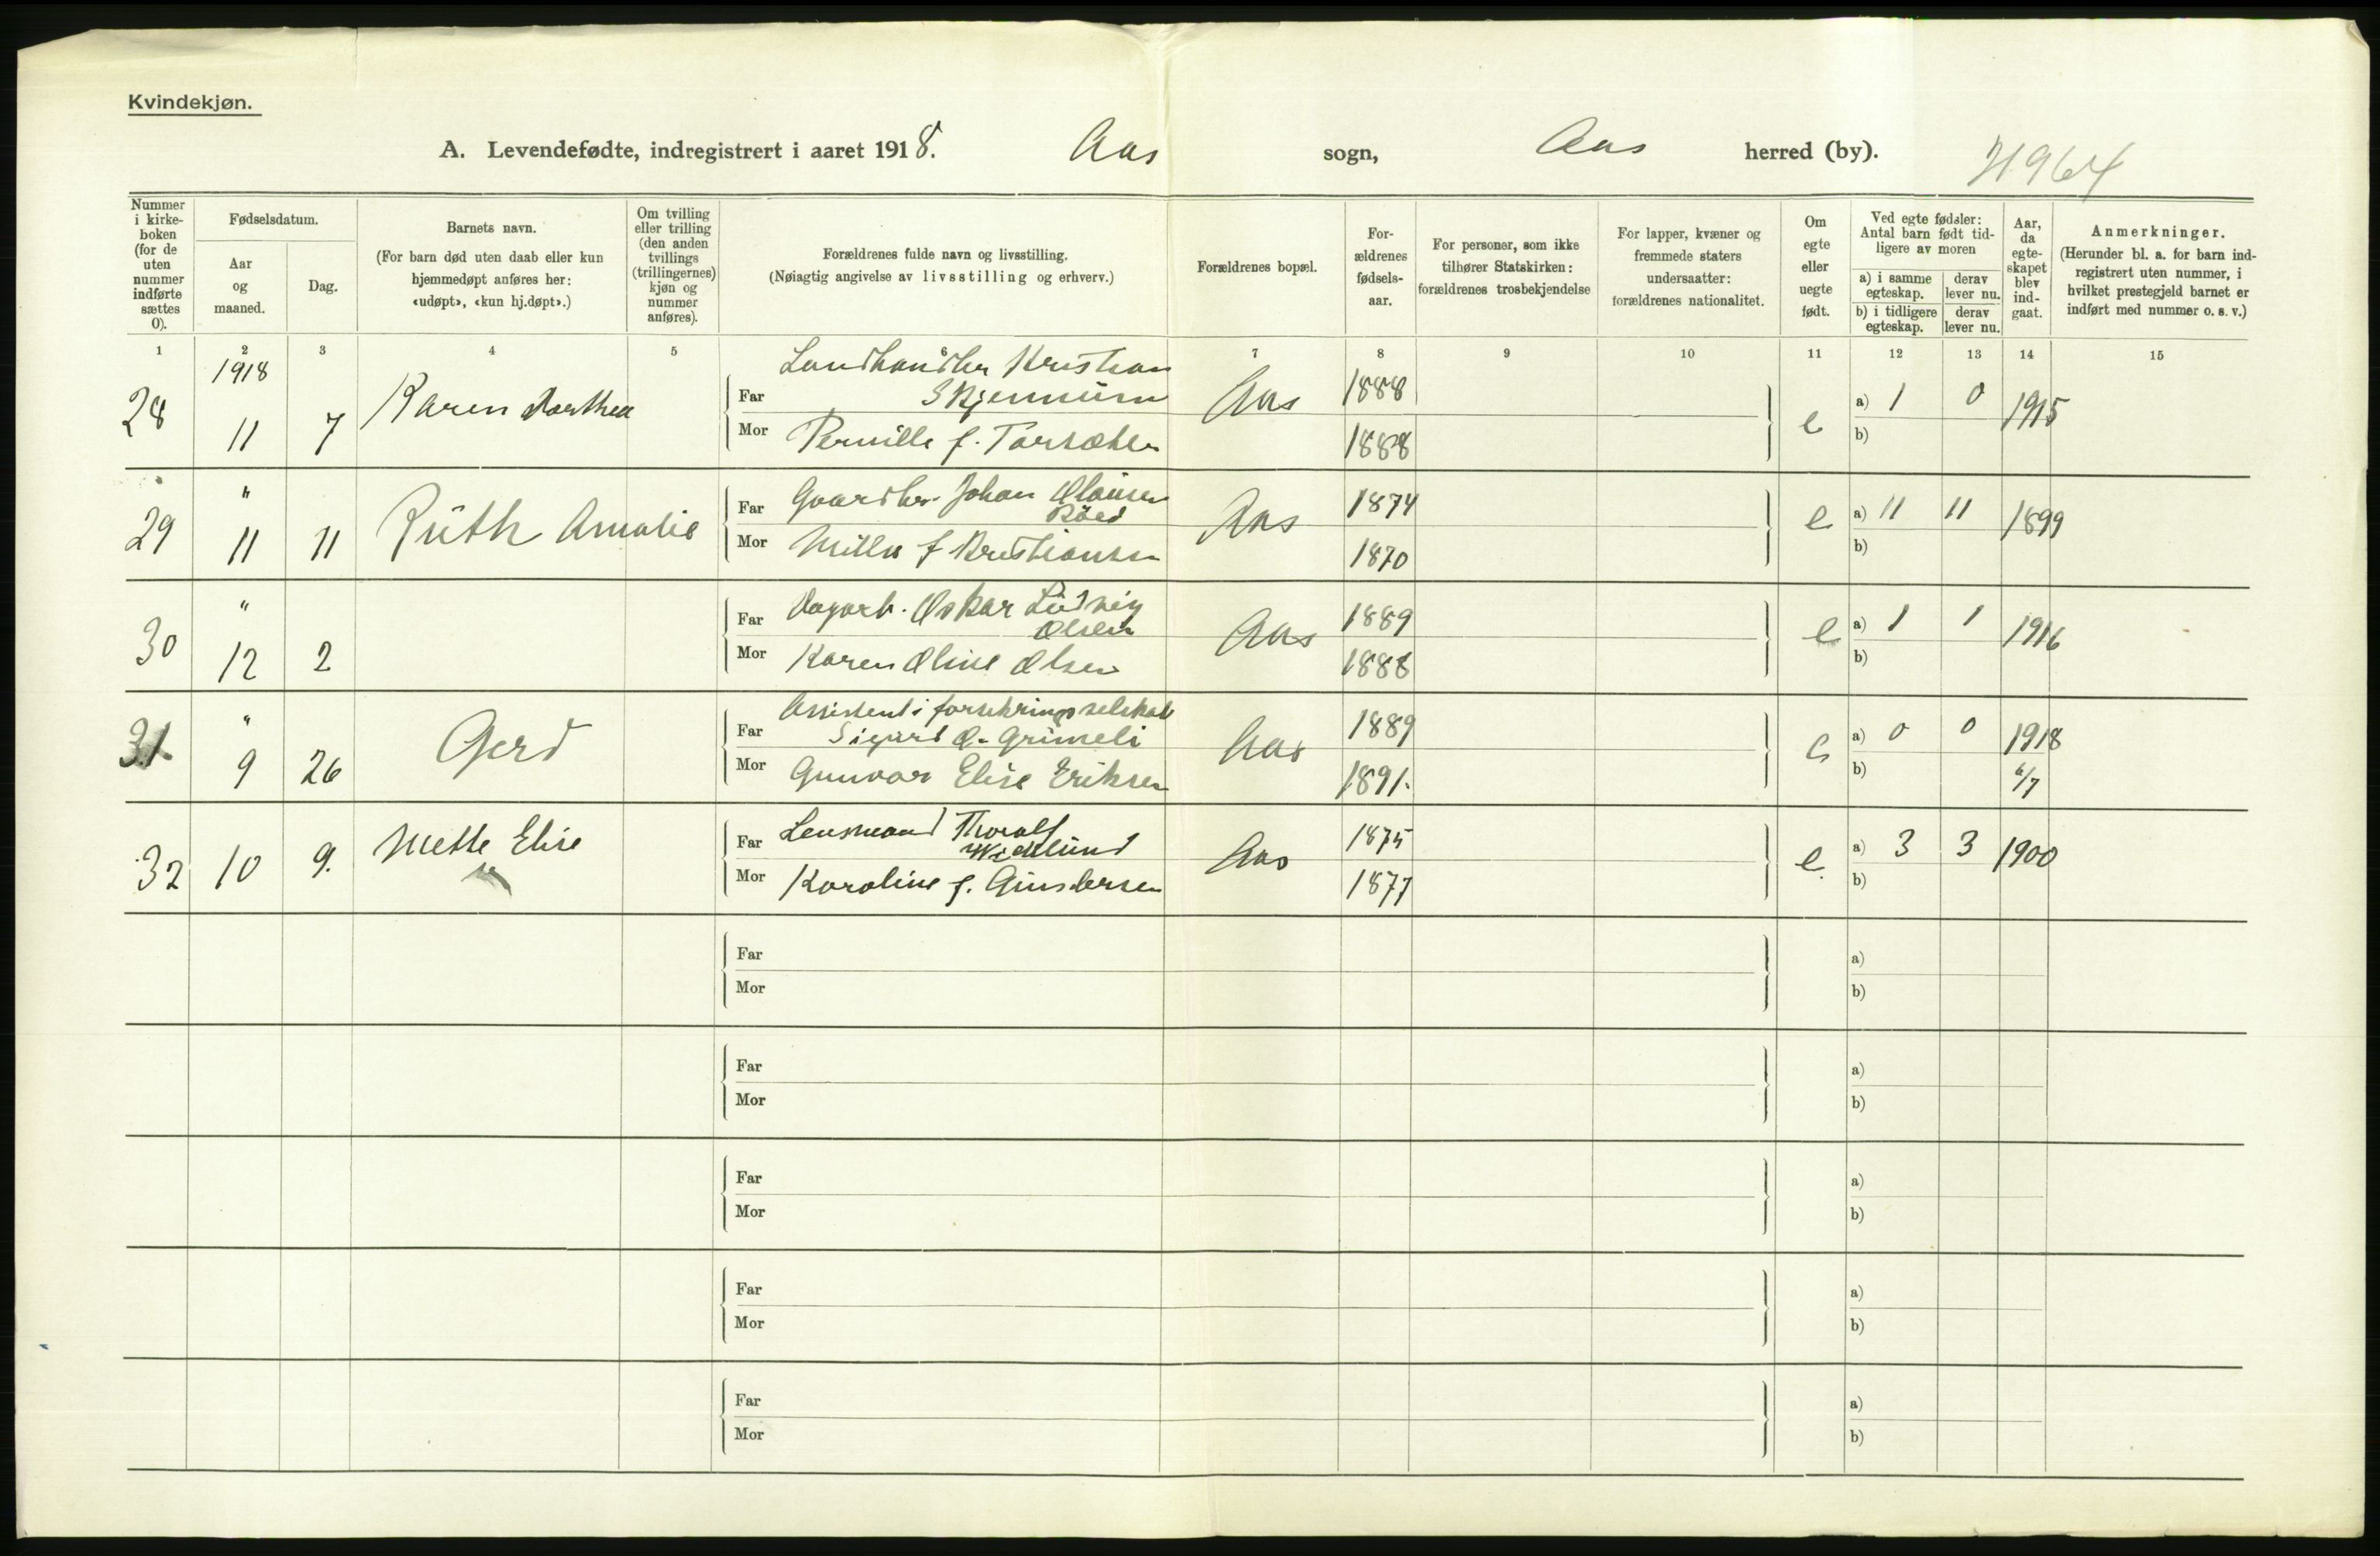 Kvindekjøn.
A. Levendefødte, indregistrert i aaret 1918. Aas sogn, Aas herred (by).
Nummer i kirke-boken (for de uten nummer indførte sættes 0).
Fødselsdatum.
Aar og maaned.
Dag.
Barnets navn.
(For barn død uten daab eller kun hjemmedøpt anføres her: «udøpt», «kun hj.døpt».)
Om tvilling eller trilling (den anden tvillings (trillingernes) kjøn og nummer anføres).
Forældrenes fulde navn og livsstilling.
(Nøiagtig angivelse av livsstilling og erhverv.)
Forældrenes bopæl.
For-ældrenes fødsels-aar.
For personer, som ikke tilhører Statskirken: forældrenes trosbekjendelse
For lapper, kvæner og fremmede staters undersaatter: forældrenes nationalitet.
Om egte eller uegte født.
Ved egte fødsler: Antal barn født tid-ligere av moren
a) i samme egteskap.
derav lever nu.
b) i tidligere egteskap.
derav lever nu.
Aar, da egte-skapet blev ind-gaat.
Anmerkninger.
(Herunder bl. a. for barn ind-registrert uten nummer, i hvilket prestegjeld barnet er indført med nummer o. s. v.)
1 2 3 4 5 6 7 8 9 10 11 12 13 14 15
1918 Landhandler Kristian
28 11 7 Karen Dorthea Far Aas 1888 e a) 1 0 1915
Mor Pernille f. 1888 b)
" Far Gaardbr. Johan Olausen Røed 1874
29 11 11 Ruth Amalie Aas e a) 11 11 1899
Mor Milla f Kristiansen 1870 b)
" Far Dagarb. Oskar Ludvig Olsen 1889
30 12 2 Aas e a) 1 1 1916
Mor Karen Oline Olsen 1888 b)
" Assistent i forsikringsselskab
31 9 26 Gerd Far Sigurd O. Grimeli Aas 1889 e a) 0 0 1918
Mor Gunvor Elise Eriksen 1891. b) 6/7
Far Lensmand Thoralf 1875
32 10 9. Mette Elise Aas e. a) 3 3 1900
Mor Karoline f. Gundersen 1877 b)
Far a)
Mor b)
Far a)
Mor b)
Far a)
Mor b)
Far a)
Mor b)
Far a)
Mor b)